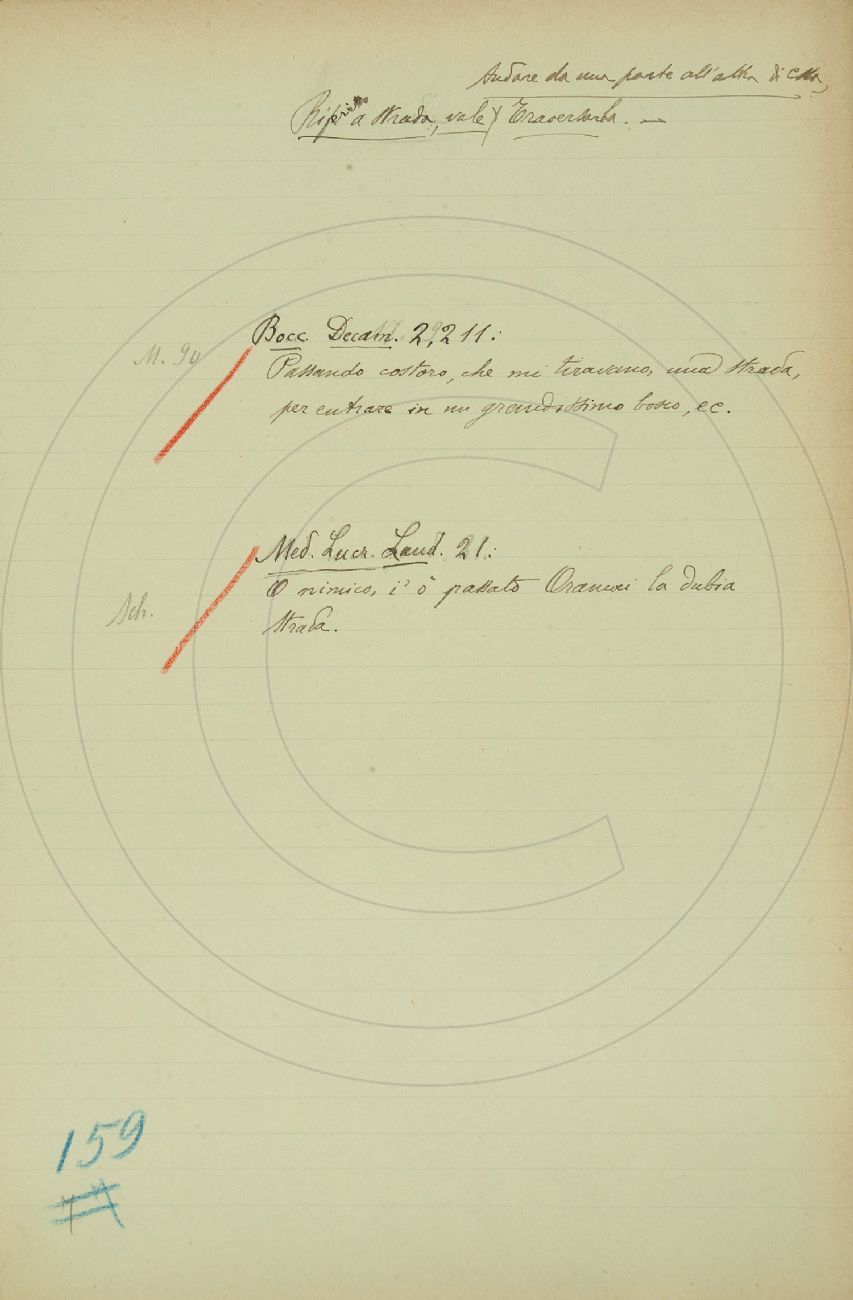 Andare da una parte all'altra di essa,
Riferito a strada, vale Traversarla. —
M. 90
Bocc. Decam. 2, 211:
Passando costoro, che mi tiravano, una strada,
per entrare in un grandissimo bosco, ec.
Med. Lucr. Laud. 21:
O nimico, i' ò passato Oramai la dubia
Sch.
strada.
159